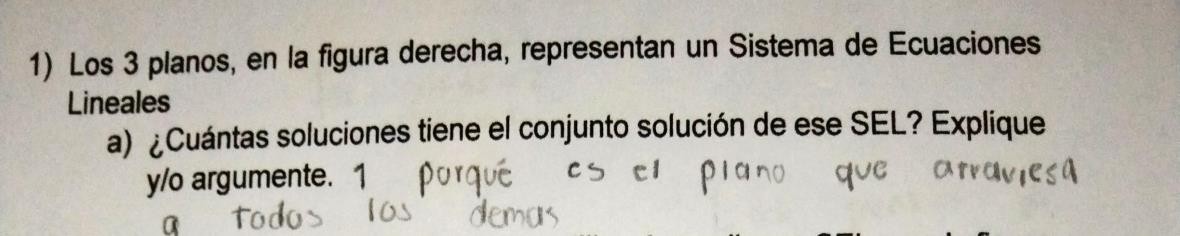 1) Los 3 planos, en la figura derecha, representan un Sistema de Ecuaciones
Lineales
a) ¿Cuántas soluciones tiene el conjunto solución de ese SEL? Explique
y/o argumente. 1 porqué es el plano que atraviesa
a todos los demas